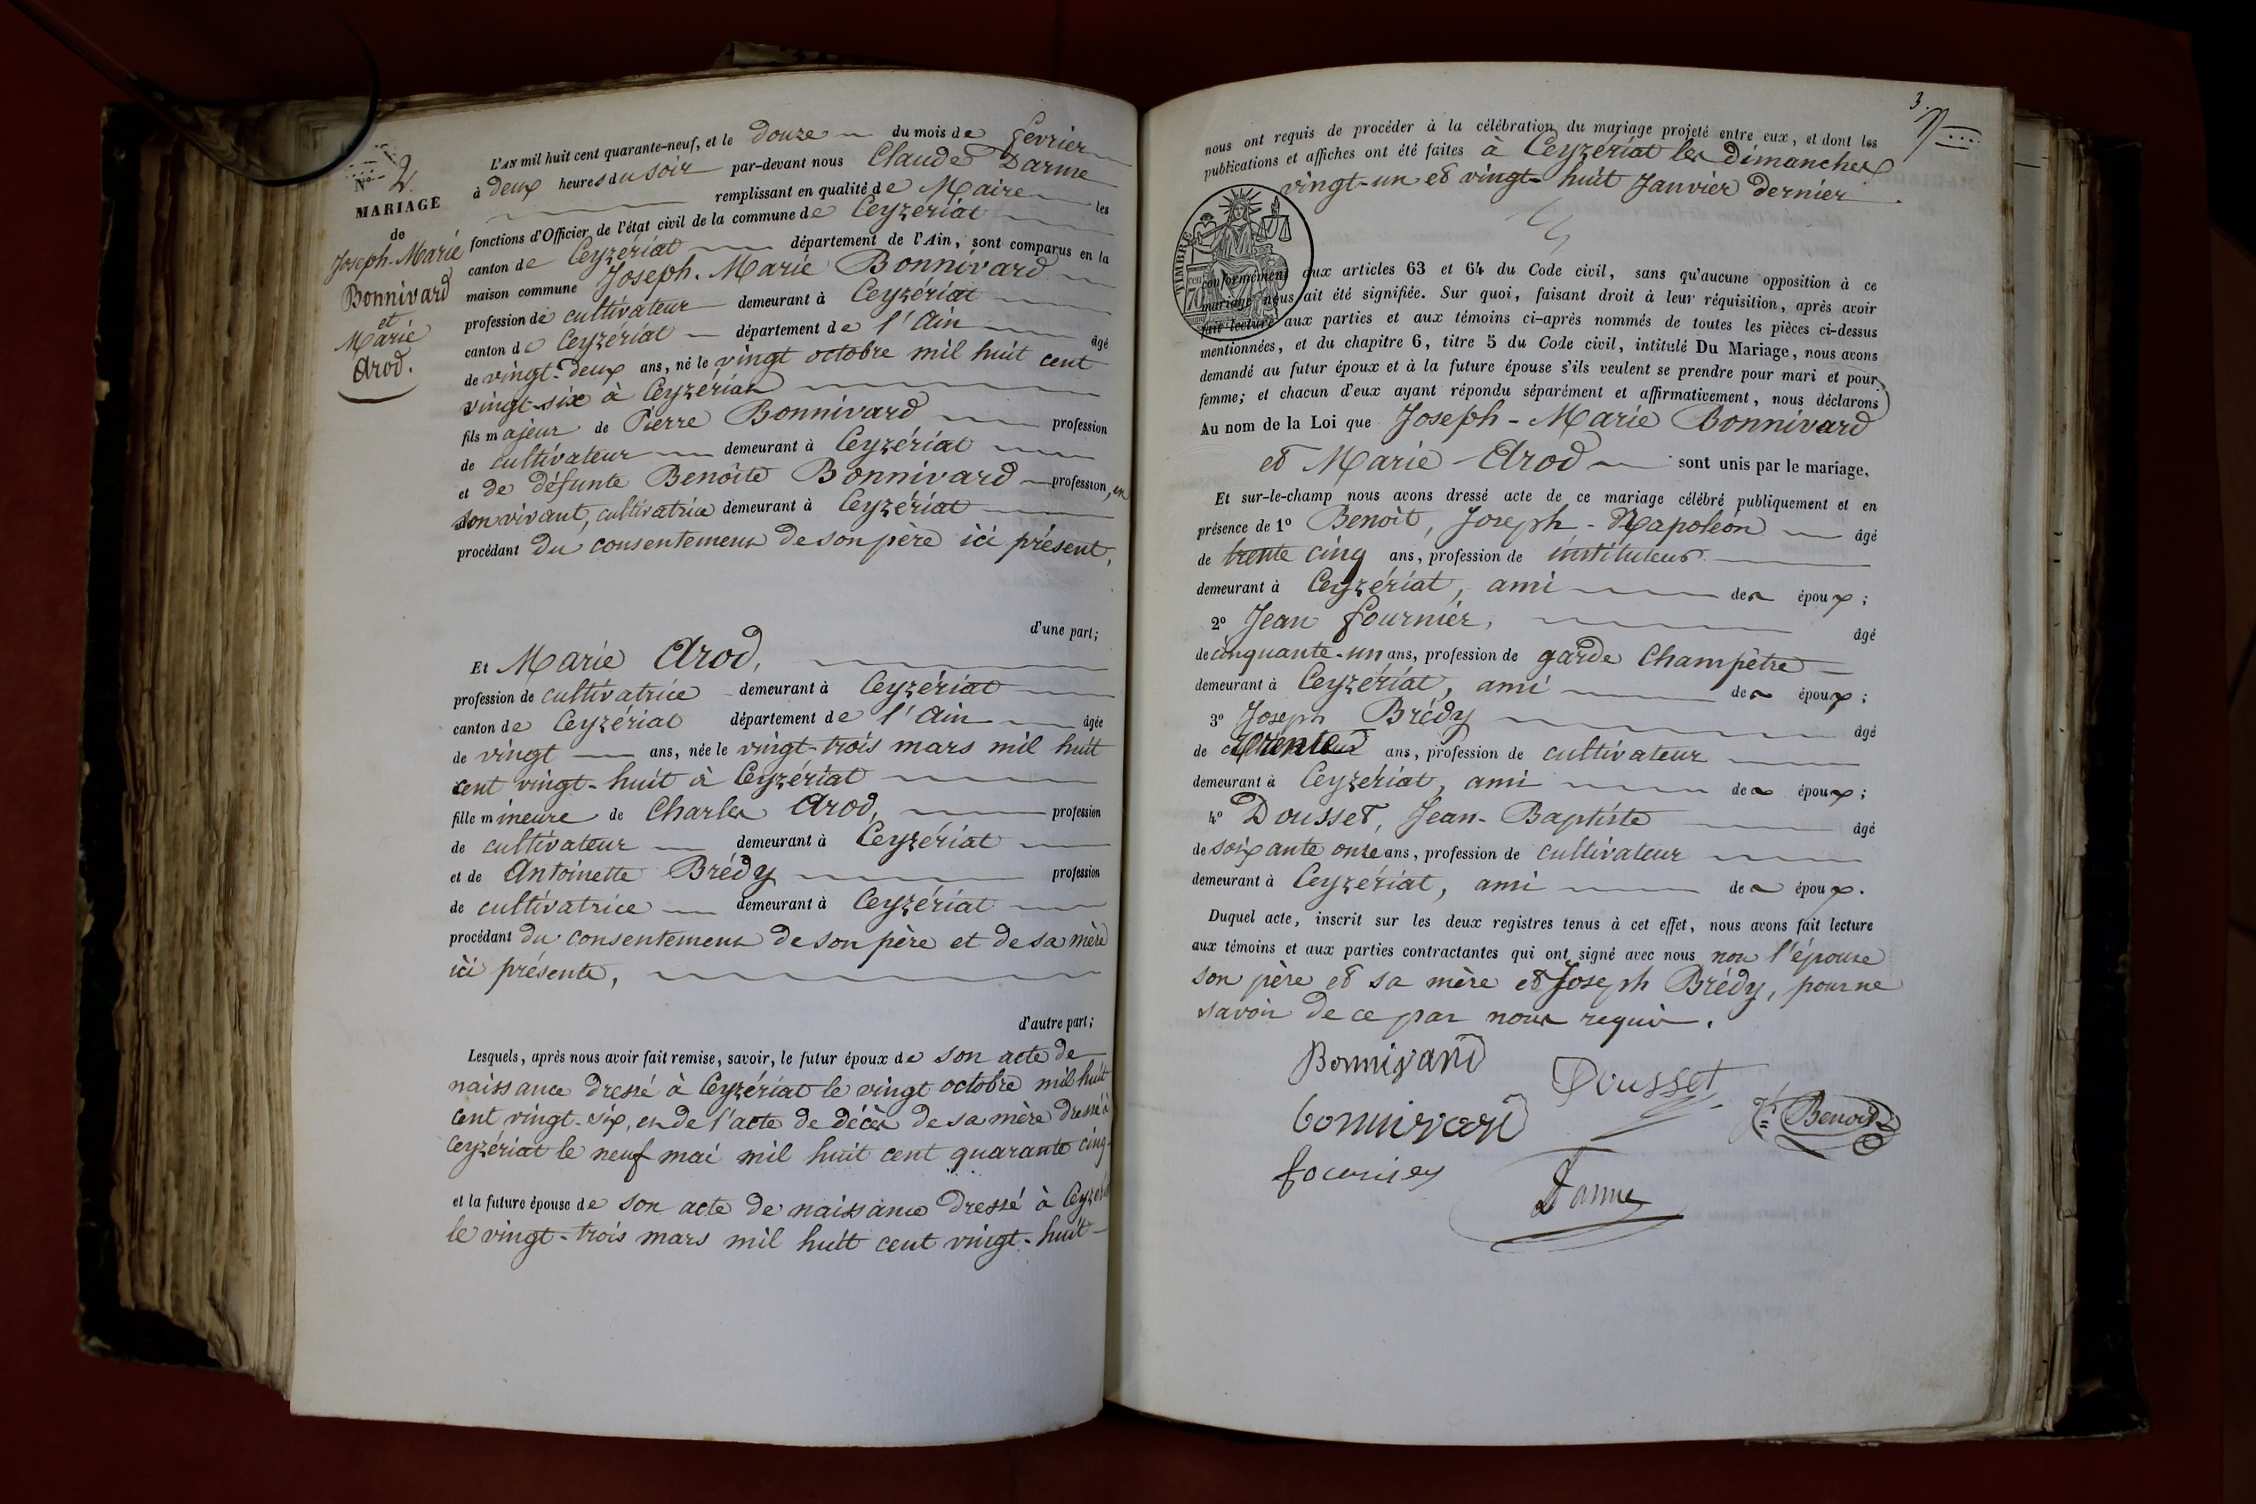 N° 2.
MARIAGE
de
Joseph-Marie
Bonnivard
et
Marie
Arod.
L'AN mil huit cent quarante-neuf, et le douze du mois de février
à deux heures du soir par-devant nous Claude Darme
remplissant en qualité de Maire les
fonctions d'Officier de l'état civil de la commune de Ceyzériat
canton de Ceyzériat département de l'Ain, sont comparus en la
maison commune Joseph-Marie Bonnivard
profession de cultivateur demeurant à Ceyzériat
canton de Ceyzériat département de l'Ain âgé
de vingt-deux ans, né le vingt octobre mil huit cent
vingt-six à Ceyzériat
fils majeur de Pierre Bonnivard profession
de cultivateur demeurant à Ceyzériat
et de défunte Benoîte Bonnivard profession, en
son vivant, cultivatrice demeurant à Ceyzériat
procédant du consentement de son père ici présent,
d'une part;
Et Marie Arod,
profession de cultivatrice demeurant à Ceyzériat
canton de Ceyzériat département de l'Ain âgée
de vingt ans, née le vingt-trois mars mil huit
cent vingt-huit à Ceyzériat
fille mineure de Charles Arod, profession
de cultivateur demeurant à Ceyzériat
et de Antoinette Brédy profession
de cultivatrice demeurant à Ceyzériat
procédant du consentement de son père et de sa mère
ici présents,
d'autre part;
Lesquels, après nous avoir fait remise, savoir, le futur époux de son acte de
naissance dressé à Ceyzériat le vingt octobre mil huit
cent vingt-six, en de l'acte de décès de sa mère dressé à
Ceyzériat le neuf mai mil huit cent quarante cinq
et la future épouse de son acte de naissance dressé à Ceyzériat
le vingt-trois mars mil huit cent vingt-huit
3.
nous ont requis de procéder à la célébration du mariage projeté entre eux, et dont les
publications et affiches ont été faites à Ceyzériat les dimanches
vingt-un et vingt-huit Janvier dernier.
TIMBRE
70
conformément aux articles 63 et 64 du Code civil, sans qu'aucune opposition à ce
mariage nous ait été signifiée. Sur quoi, faisant droit à leur réquisition, après avoir
fait lecture aux parties et aux témoins ci-après nommés de toutes les pièces ci-dessus
mentionnées, et du chapitre 6, titre 5 du Code civil, intitulé Du Mariage, nous avons
demandé au futur époux et à la future épouse s'ils veulent se prendre pour mari et pour
femme; et chacun d'eux ayant répondu séparément et affirmativement, nous déclarons
Au nom de la Loi que Joseph-Marie Bonnivard
et Marie Arod sont unis par le mariage.
Et sur-le-champ nous avons dressé acte de ce mariage célébré publiquement et en
présence de 1° Benoit, Joseph-Napoléon âgé
de trente cinq ans, profession de instituteur
demeurant à Ceyzériat, ami des époux;
2° Jean fournier, âgé
de cinquante-un ans, profession de garde Champêtre
demeurant à Ceyzériat, ami des époux;
3° Joseph Brédy âgé
de trente ans, profession de cultivateur
demeurant à Ceyzériat, ami des époux;
4° Dousset, Jean-Baptiste âgé
de soixante onze ans, profession de cultivateur
demeurant à Ceyzériat, ami des époux.
Duquel acte, inscrit sur les deux registres tenus à cet effet, nous avons fait lecture
aux témoins et aux parties contractantes qui ont signé avec nous non l'épouse
son père et sa mère et Joseph Brédy, pour ne
savoir de ce par nous requis.
Bonnivard
Dousset
Bonnivard
Jh Benoit
fournier
Darme